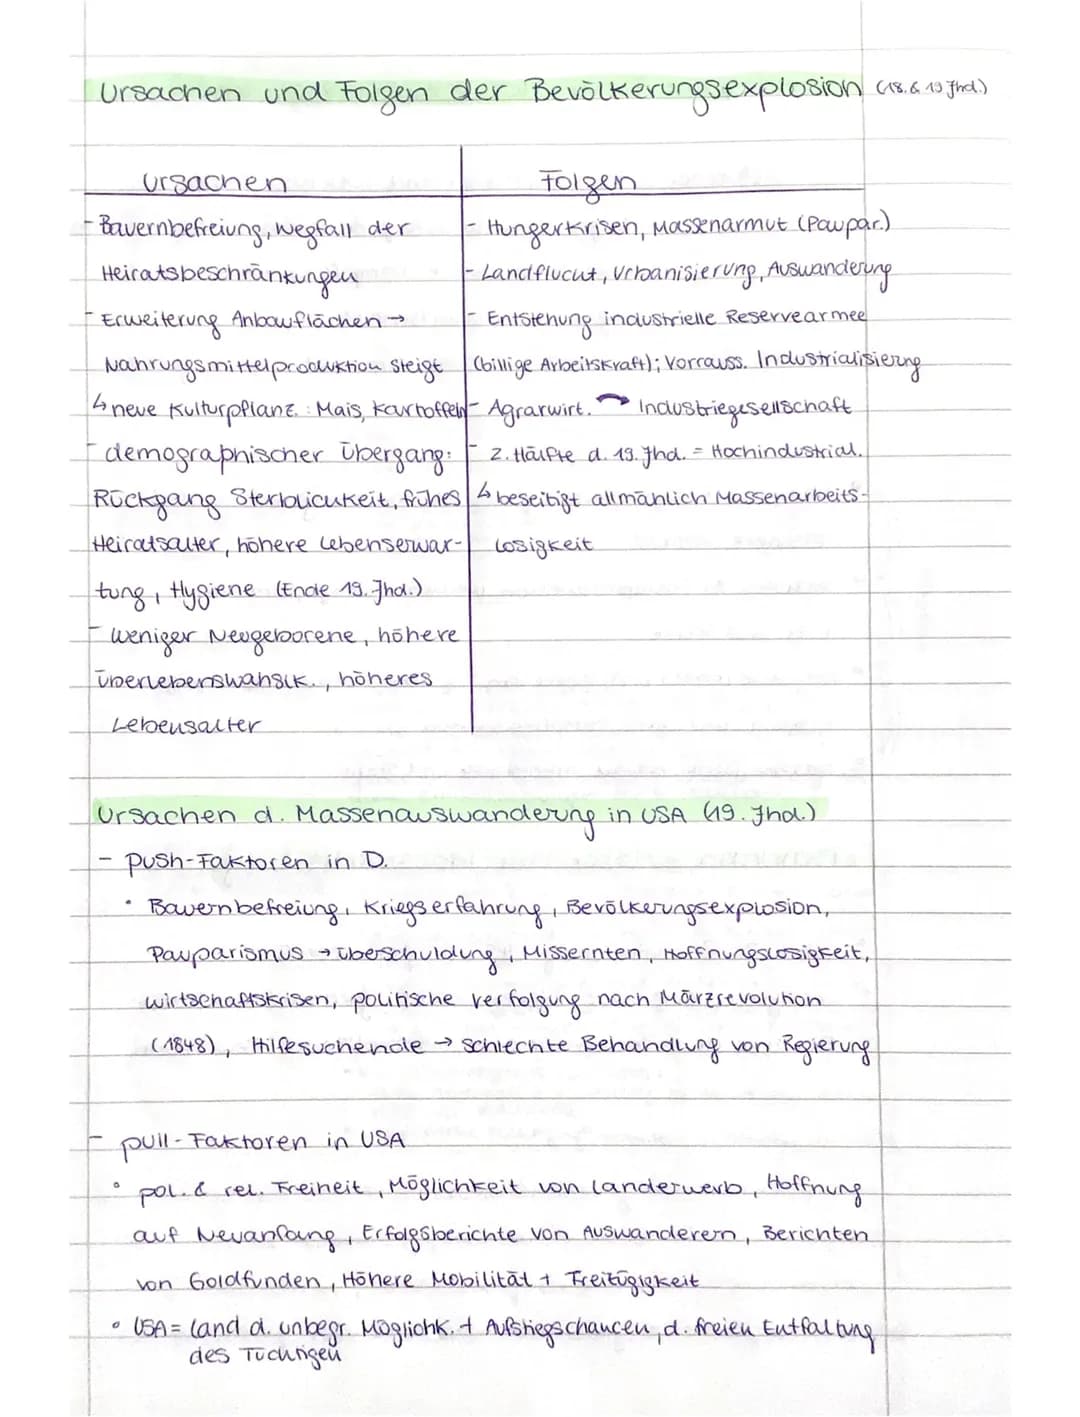 Ursachen und Folgen der Bevölkerungsexplosion (18. & 19 Jhd.)
Ursachen
- Bauernbefreiung, Wegfall der
Heiratsbeschränkungen
- Erweiterung Anbauflächen →
Nahrungsmittelproduktion steigt
↳ neue Kulturpflanz.: Mais, Kartoffeln
- demographischer Übergang:
Rückgang Sterblichkeit, frühes
Heiratsalter, höhere Lebenserwar-
tung, Hygiene (Ende 19. Jhd.)
- weniger Neugeborene, höhere
Überlebenswahsik., höheres
Lebensalter
Folgen
- Hungerkrisen, Massenarmut (Paupar.)
- Landflucht, Urbanisierung, Auswanderung
- Entstehung industrielle Reservearmee
(billige Arbeitskraft); Vorrauss. Industrialisierng
- Agrarwirt. → Industriegesellschaft
- 2. Hälfte d. 19. Jhd. = Hochindustrial.
↳ beseitigt allmählich Massenarbeits-
losigkeit
Ursachen d. Massenauswanderung in USA (19. Jhd.)
- push-Faktoren in D.
• Bauernbefreiung, Kriegserfahrung, Bevölkerungsexplosion,
Pauparismus → Überschuldung, Missernten, Hoffnungslosigkeit,
wirtschaftskrisen, politische verfolgung nach Märzrevolution
(1848), Hilfesuchende → schlechte Behandlung von Regierung
- pull-Faktoren in USA
• pol. & rel. Freiheit, Möglichkeit von landerwerb, Hoffnung
auf Neuanfang, Erfolgsberichte von Auswanderern, Berichten
von Goldfunden, Höhere Mobilität + Freitügigkeit
• USA = Land d. unbegr. Möglichk. + Aufstiegschancen, d. freien Entfaltung
des Tüchtigen